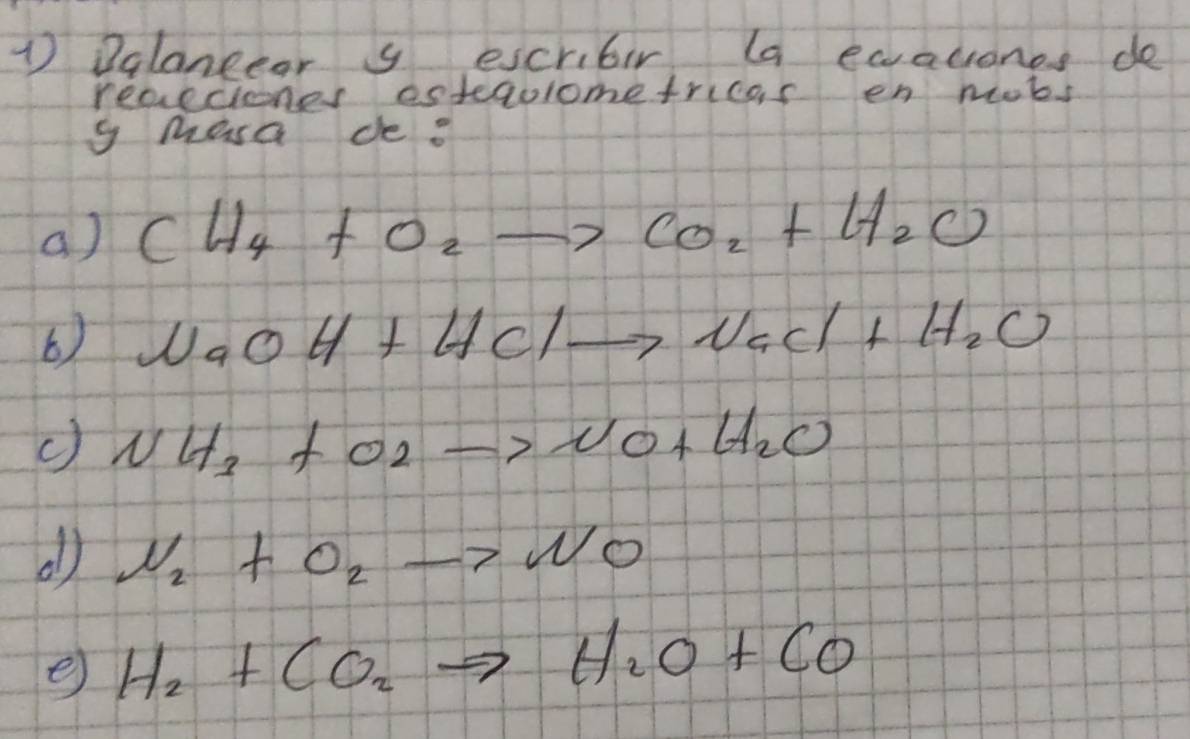 1) Balancear y escribir la ecuaciones de
reacciones estequiometricas en mobs
y masa de:
a) CH₄ + O₂ → CO₂ + H₂O
b) NaOH + HCl → NaCl + H₂O
c) NH₃ + O2 → NO + H₂O
d) N₂ + O₂ → NO
e) H₂ + CO₂ → H₂O + CO